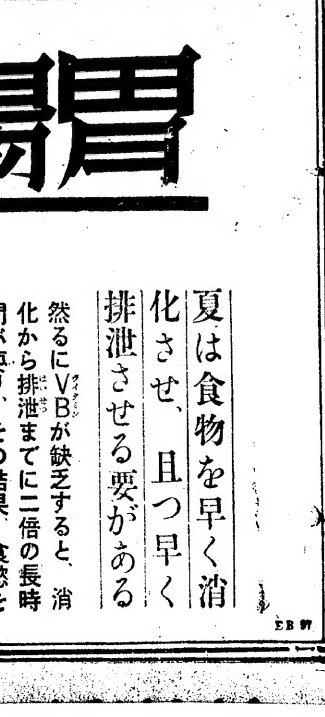 胃腸
夏は食物を早く消
化させ、且つ早く
排泄させる要がある
然るにVBが缺乏すると、消
化から排泄までに二倍の長時
EB 97